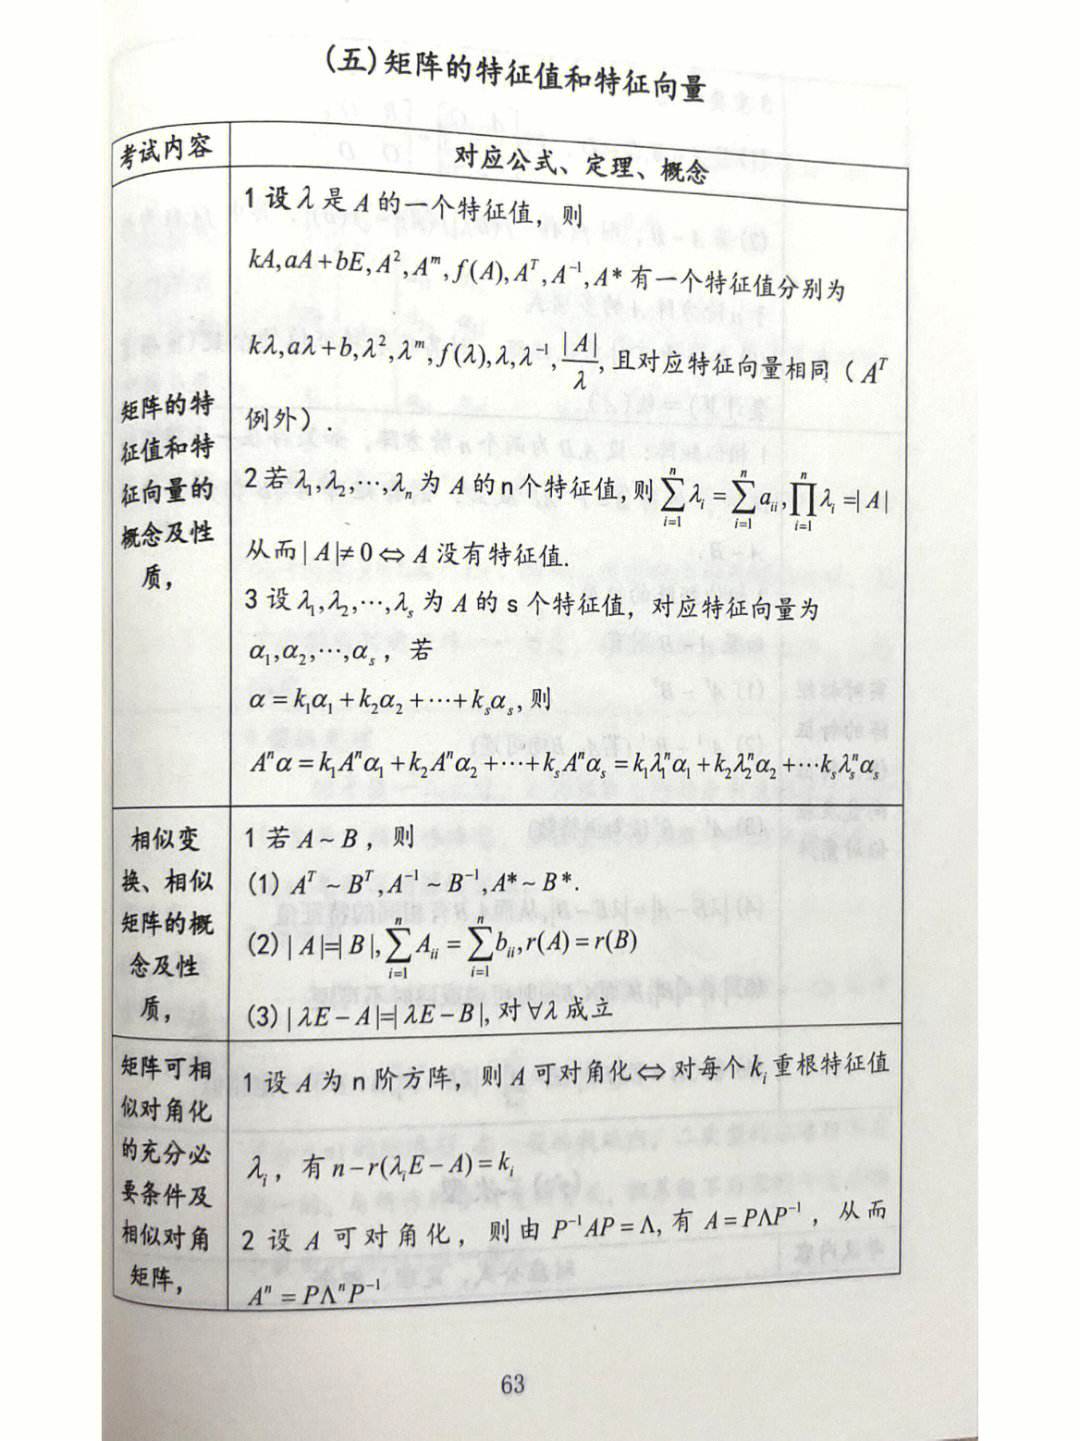 (五)矩阵的特征值和特征向量
考试内容
对应公式、定理、概念
矩阵的特
征值和特
征向量的
概念及性
质,
1 设 λ 是 A 的一个特征值，则
kA,aA+bE,A²,Aᵐ,f(A),Aᵀ,A⁻¹,A* 有一个特征值分别为
kλ,aλ+b,λ²,λᵐ,f(λ),λ,λ⁻¹,|A|/λ,且对应特征向量相同（Aᵀ
例外）.
2 若 λ₁,λ₂,⋯,λₙ 为 A 的n个特征值,则 ∑ⁿᵢ₌₁ λᵢ = ∑ⁿᵢ₌₁ aᵢᵢ,∏ⁿᵢ₌₁ λᵢ =|A|
从而|A|≠0⇔A 没有特征值.
3 设 λ₁,λ₂,⋯,λₛ 为 A 的 s 个特征值，对应特征向量为
α₁,α₂,⋯,αₛ，若
α=k₁α₁+k₂α₂+⋯+kₛαₛ,则
Aⁿα=k₁Aⁿα₁+k₂Aⁿα₂+⋯+kₛAⁿαₛ=k₁λ₁ⁿα₁+k₂λ₂ⁿα₂+⋯kₛλₛⁿαₛ
相似变
换、相似
矩阵的概
念及性
质,
1 若 A~B，则
(1) Aᵀ~Bᵀ,A⁻¹~B⁻¹,A*~B*.
(2)|A|=|B|,∑ⁿᵢ₌₁ Aᵢᵢ = ∑ⁿᵢ₌₁ bᵢᵢ,r(A)=r(B)
(3)|λE−A|=|λE−B|,对∀λ成立
矩阵可相
似对角化
的充分必
要条件及
相似对角
矩阵,
1 设 A 为 n 阶方阵，则 A 可对角化⇔对每个kᵢ重根特征值
λᵢ，有 n−r(λᵢE−A)=kᵢ
2 设 A 可对角化，则由 P⁻¹AP=Λ,有 A=PΛP⁻¹，从而
Aⁿ=PΛⁿP⁻¹
63